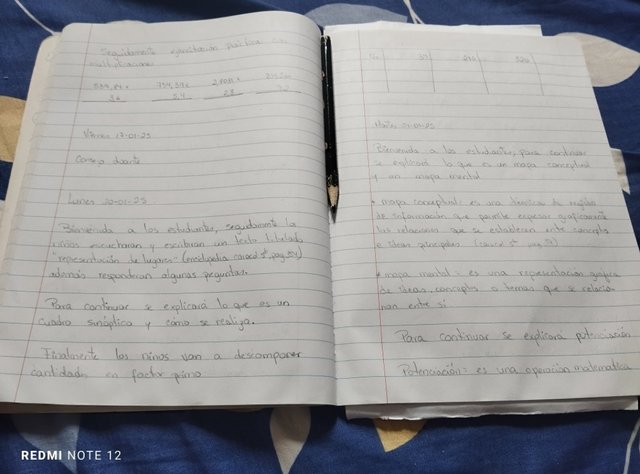 Seguidamente ejercitación práctica con
multiplicaciones
Viernes 17-01-25
Consejo docente
Lunes 20-01-25
Bienvenida a los estudiantes, seguidamente los
niños escucharan y escribiran un texto titulado
"representación de lugares" (enciclopedia caracol 5°, pag.
además responderan algunas preguntas.
Para continuar se explicará lo que es un
cuadro sinóptico y cómo se realiza.
Finalmente los niños van a descomponer
cantidades en factor primo
Martes -01-25
Bienvenida a los estudiantes, para continuar
se explicará lo que es un mapa conceptual
y un mapa mental
• mapa conceptual: es una técnica de
de información que permite expresar graficamente
las relaciones que se establecen entre conceptos
e ideas principales (caracol 5° pag.
• mapa mental: es una representación gráfica
de ideas, conceptos o temas que se relacio-
nan entre si
Para continuar se explicará potenciación
Potenciación: es una operación matematica
REDMI NOTE 12